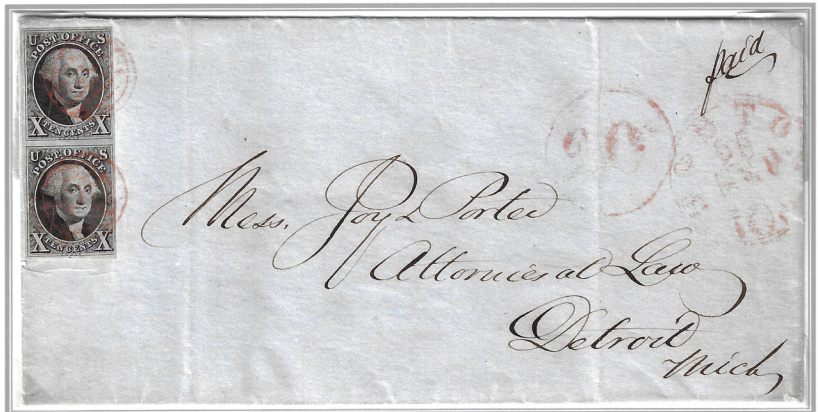 U S
POST OFFICE
X TEN CENTS X
U S
POST OFFICE
X TEN CENTS X
paid
20
Mess. Joy & Porter
Attornies at Law
Detroit
Mich